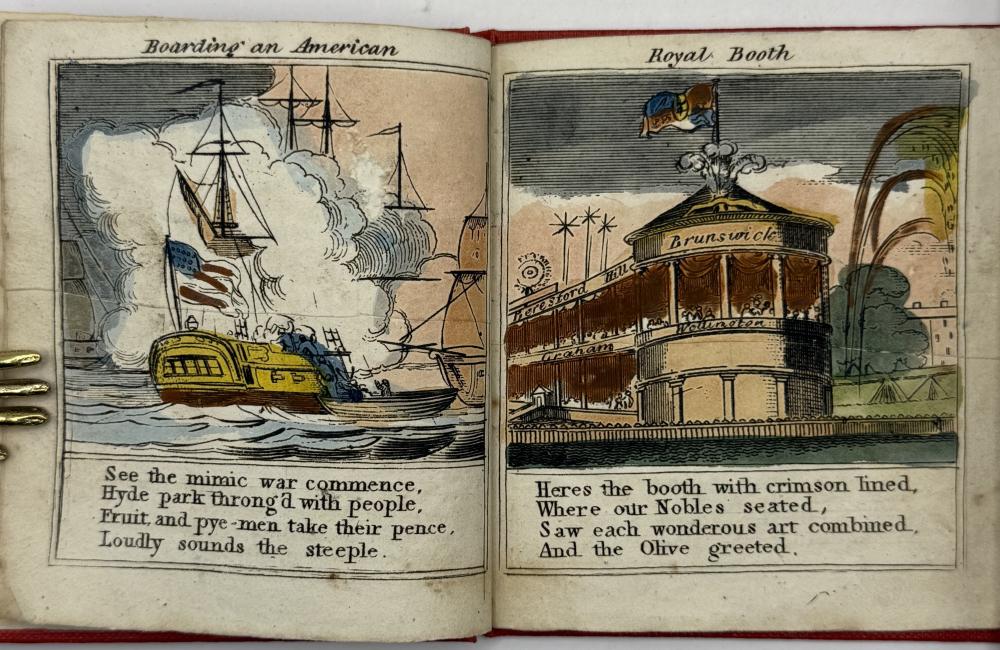 Boarding an American
See the mimic war commence,
Hyde park throng'd with people,
Fruit, and pye-men take their pence,
Loudly sounds the steeple.
Royal Booth
Brunswick
Beresford Hill
Wellington
Graham
Heres the booth with crimson lined,
Where our Nobles seated,
Saw each wonderous art combined,
And the Olive greeted.